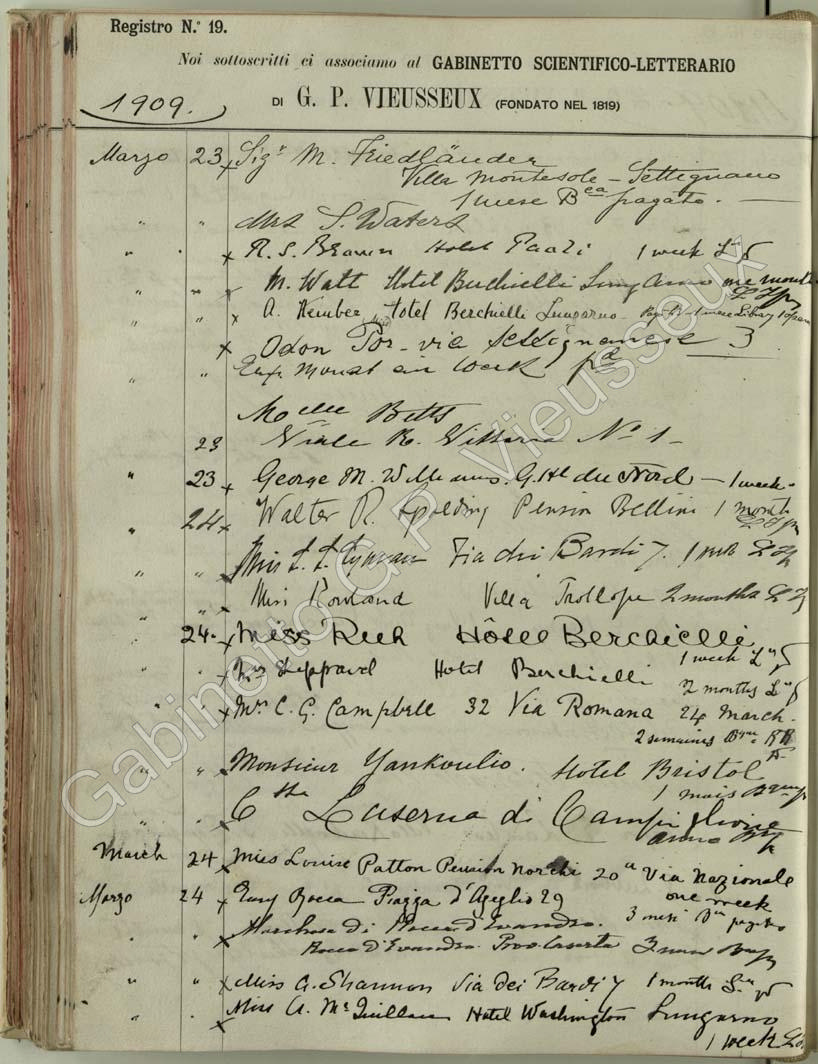 Registro N.° 19.
Noi sottoscritti ci associamo al GABINETTO SCIENTIFICO-LETTERARIO
1909.
DI G. P. VIEUSSEUX (FONDATO NEL 1819)
Marzo 23 x Sigr M. Friedländer
Villa Montesole - Settignano
1 mese Bca pagato. —
" " Mrs S. Waters
" " x R. S. Brown Hotel Paoli 1 week
" " M. Watt Hotel Berchielli Lung'Arno one month
" " x A. Kember Hotel Berchielli Lungarno - 1 mese Library
x Odon Por - via Settignanese 3
" " Monat ein Werk pd
Melle Betts
23 Viale R. Vittoria No 1 -
" 23 x George M. Williams. G. Hl du Nord - 1 week -
" 24 x Walter R. Spalding Pension Bellini 1 month
" " x Miss Via dei Bardi 7.
" " Miss Rowland Villa Trollope 2 months
" 24. x Miss Rich Hôtel Berchielli
1 week
" " x Hotel Berchielli
2 months
" " x Mrs C. G. Campbell 32 Via Romana 24 March.
2 semaines
" " x Monsieur Yankoulio. Hotel Bristol
1 mois
" " x Ctssa Luserna di Campi
anno
March 24 x Miss Louise Patton Pension Norchi 20a Via Nazionale
one week
Marzo 24 x Rocca Piazza d'Azeglio 29
3 mesi pagato
" " x Marchesa di Rocca d'Evandro.
Rocca d'Evandro. Prov. Caserta 3 mesi
" " x Miss A. Shannon Via dei Bardi 7 1 month
" " x Miss A. McQuillan Hotel Washington Lungarno
1 week
Gabinetto G.P. Vieusseux